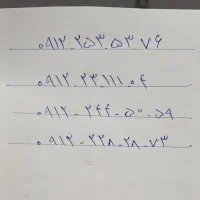 ۰۹۱۲.۲۵۳.۵۳۷۶
۰۹۱۲.۲۳.۱۱۱.۰۴
۰۹۱۲-۲۴۴-۵۰.۵۹
۰۹۱۲-۲۲۸-۲۸-۷۳